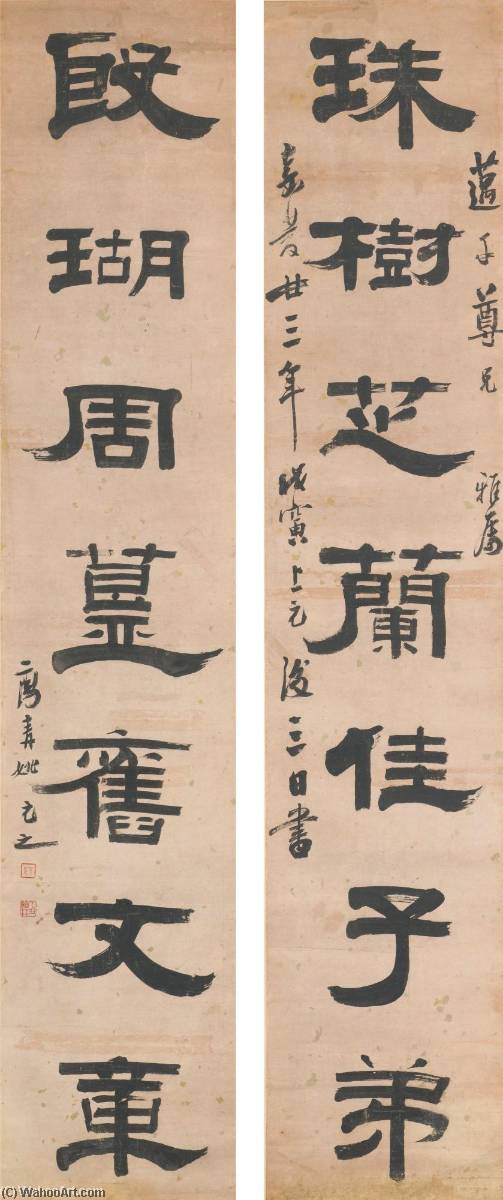 珠樹芝蘭佳子弟
邁千尊兄 雅屬
嘉慶廿三年戊寅上元後三日書
殷瑚周簋舊文章
廌青姚元之
(C) WahooArt.com